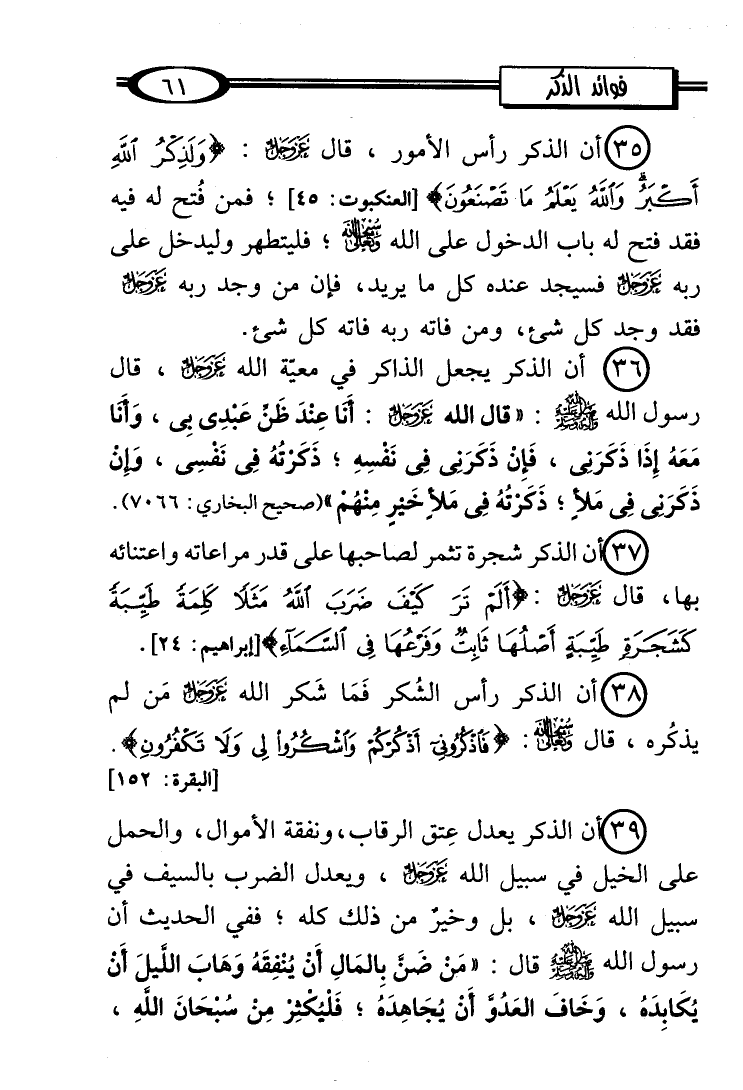 فوائد الذكر
٦١
٣٥ أن الذكر رأس الأمور ، قال عَزَّوَجَلَّ : ﴿وَلَذِكْرُ ٱللَّهِ
أَكْبَرُ ۗ وَٱللَّهُ يَعْلَمُ مَا تَصْنَعُونَ﴾ [العنكبوت: ٤٥] ؛ فمن فُتح له فيه
فقد فتح له باب الدخول على الله سُبْحَانَهُ وَتَعَالَى ؛ فليتطهر وليدخل على
ربه عَزَّوَجَلَّ فسيجد عنده كل ما يريد، فإن من وجد ربه عَزَّوَجَلَّ
فقد وجد كل شئ، ومن فاته ربه فاته كل شئ.
٣٦ أن الذكر يجعل الذاكر في معيّة الله عَزَّوَجَلَّ ، قال
رسول الله ﷺ : «قال الله عَزَّوَجَلَّ : أَنَا عِنْدَ ظَنِّ عَبْدِى بِى ، وَأَنَا
مَعَهُ إِذَا ذَكَرَنِى ، فَإِنْ ذَكَرَنِى فِى نَفْسِهِ ؛ ذَكَرْتُهُ فِى نَفْسِى ، وَإِنْ
ذَكَرَنِى فِى مَلأٍ ؛ ذَكَرْتُهُ فِى مَلأٍ خَيْرٍ مِنْهُمْ»(صحيح البخاري: ٧٠٦٦).
٣٧ أن الذكر شجرة تثمر لصاحبها على قدر مراعاته واعتنائه
بها، قال عَزَّوَجَلَّ :﴿أَلَمْ تَرَ كَيْفَ ضَرَبَ ٱللَّهُ مَثَلًا كَلِمَةً طَيِّبَةً
كَشَجَرَةٍ طَيِّبَةٍ أَصْلُهَا ثَابِتٌ وَفَرْعُهَا فِى ٱلسَّمَآءِ﴾[إبراهيم: ٢٤].
٣٨ أن الذكر رأس الشُكر فَمَا شَكر الله عَزَّوَجَلَّ مَن لم
يذكُره ، قال سُبْحَانَهُ وَتَعَالَى : ﴿فَٱذْكُرُونِىٓ أَذْكُرْكُمْ وَٱشْكُرُوا۟ لِى وَلَا تَكْفُرُونِ﴾.
[البقرة: ١٥٢]
٣٩ أن الذكر يعدل عِتق الرقاب،ونفقة الأموال، والحمل
على الخيل في سبيل الله عَزَّوَجَلَّ ، ويعدل الضرب بالسيف في
سبيل الله عَزَّوَجَلَّ ، بل وخيرٌ من ذلك كله ؛ ففي الحديث أن
رسول الله ﷺ قال : «مَنْ ضَنَّ بِالمَالِ أَنْ يُنْفِقَهُ وَهَابَ اللَّيلَ أَنْ
يُكَابِدَهُ ، وَخَافَ العَدُوَّ أَنْ يُجَاهِدَهُ ؛ فَلْيُكْثِرْ مِنْ سُبْحَانَ اللَّهِ ،